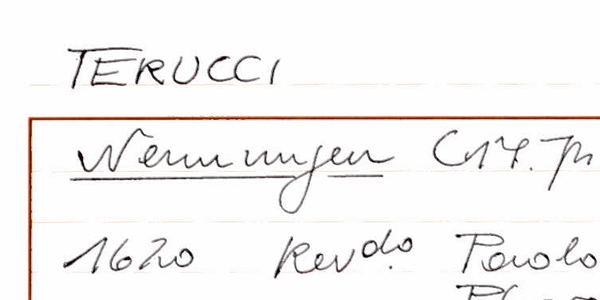 TERUCCI
Nenningen
1620 Revdo. Paolo